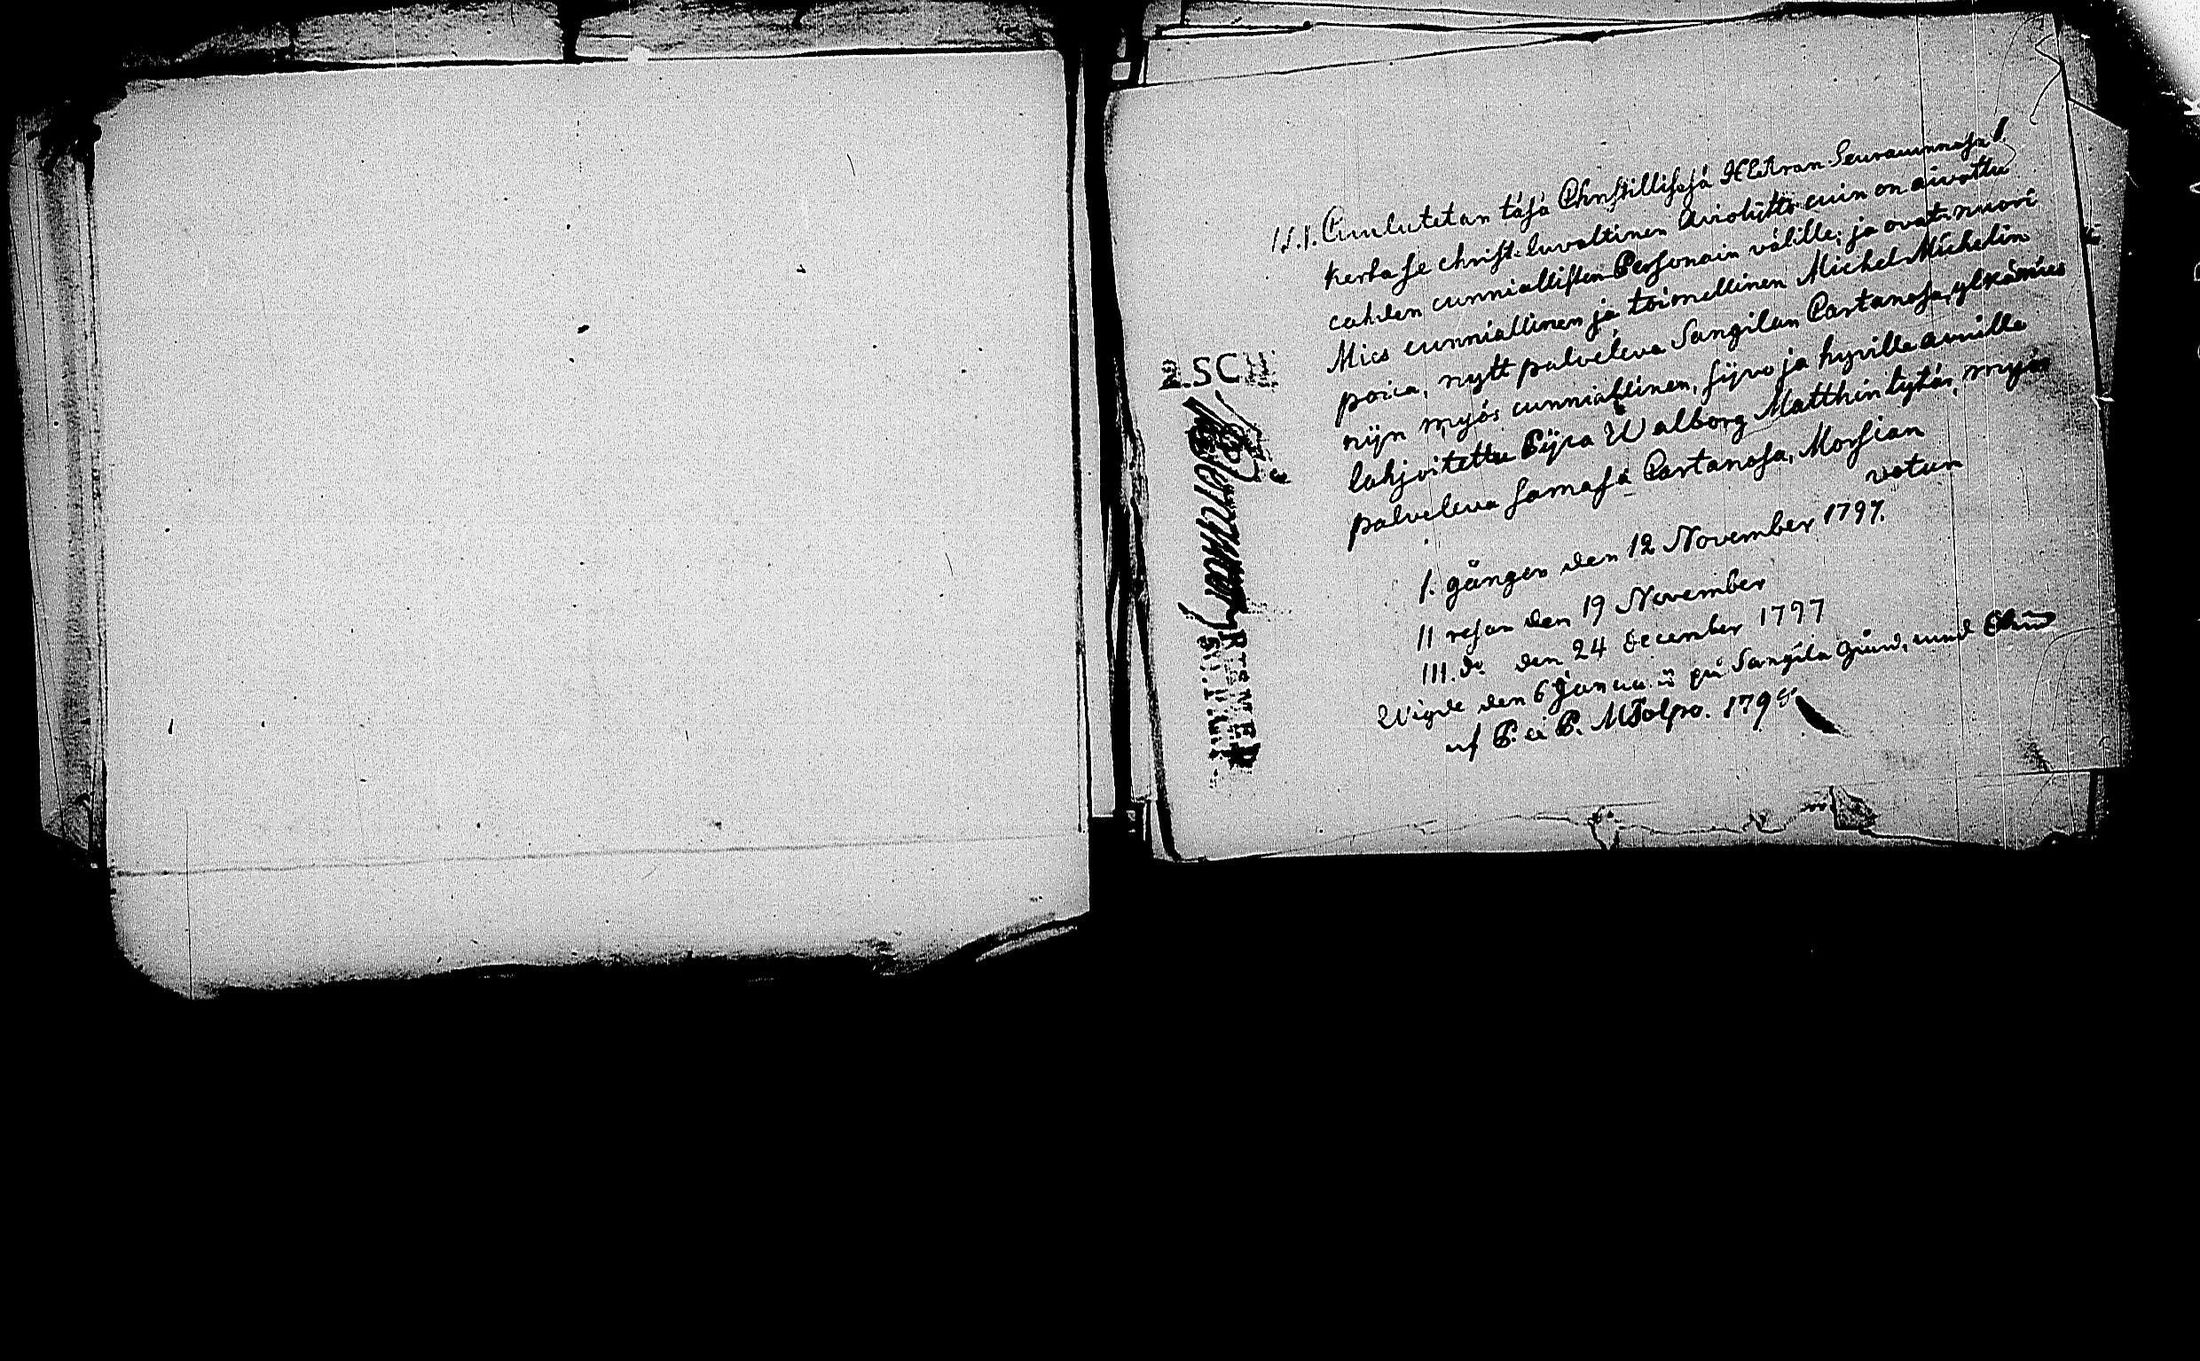 N.1. Cuulutetan täsä Christillisesä HErran Seuracunnasa I.
kerta se christ. luvallinen Avioliitto cuin on aivottu
cahden cunniallisten Personain välille; ja ovat: nuori
Mies cunniallinen ja toimellinen Michel Michelin
poica, nytt palveleva Sangilan Cartanosa, ylkämies
nijn myös cunniallinen, sijvo ja hyville avuille
lahjoitettu Pijca Walborg Matthin tytär, myös
palveleva samasa Cartanosa, Morsian
votum
I. gången den 12 November 1797.
II resan den 19 November
III. do den 24 December 1797
Wigde den 6 Januarii på Sangila
af P. M Tolpo. 1798